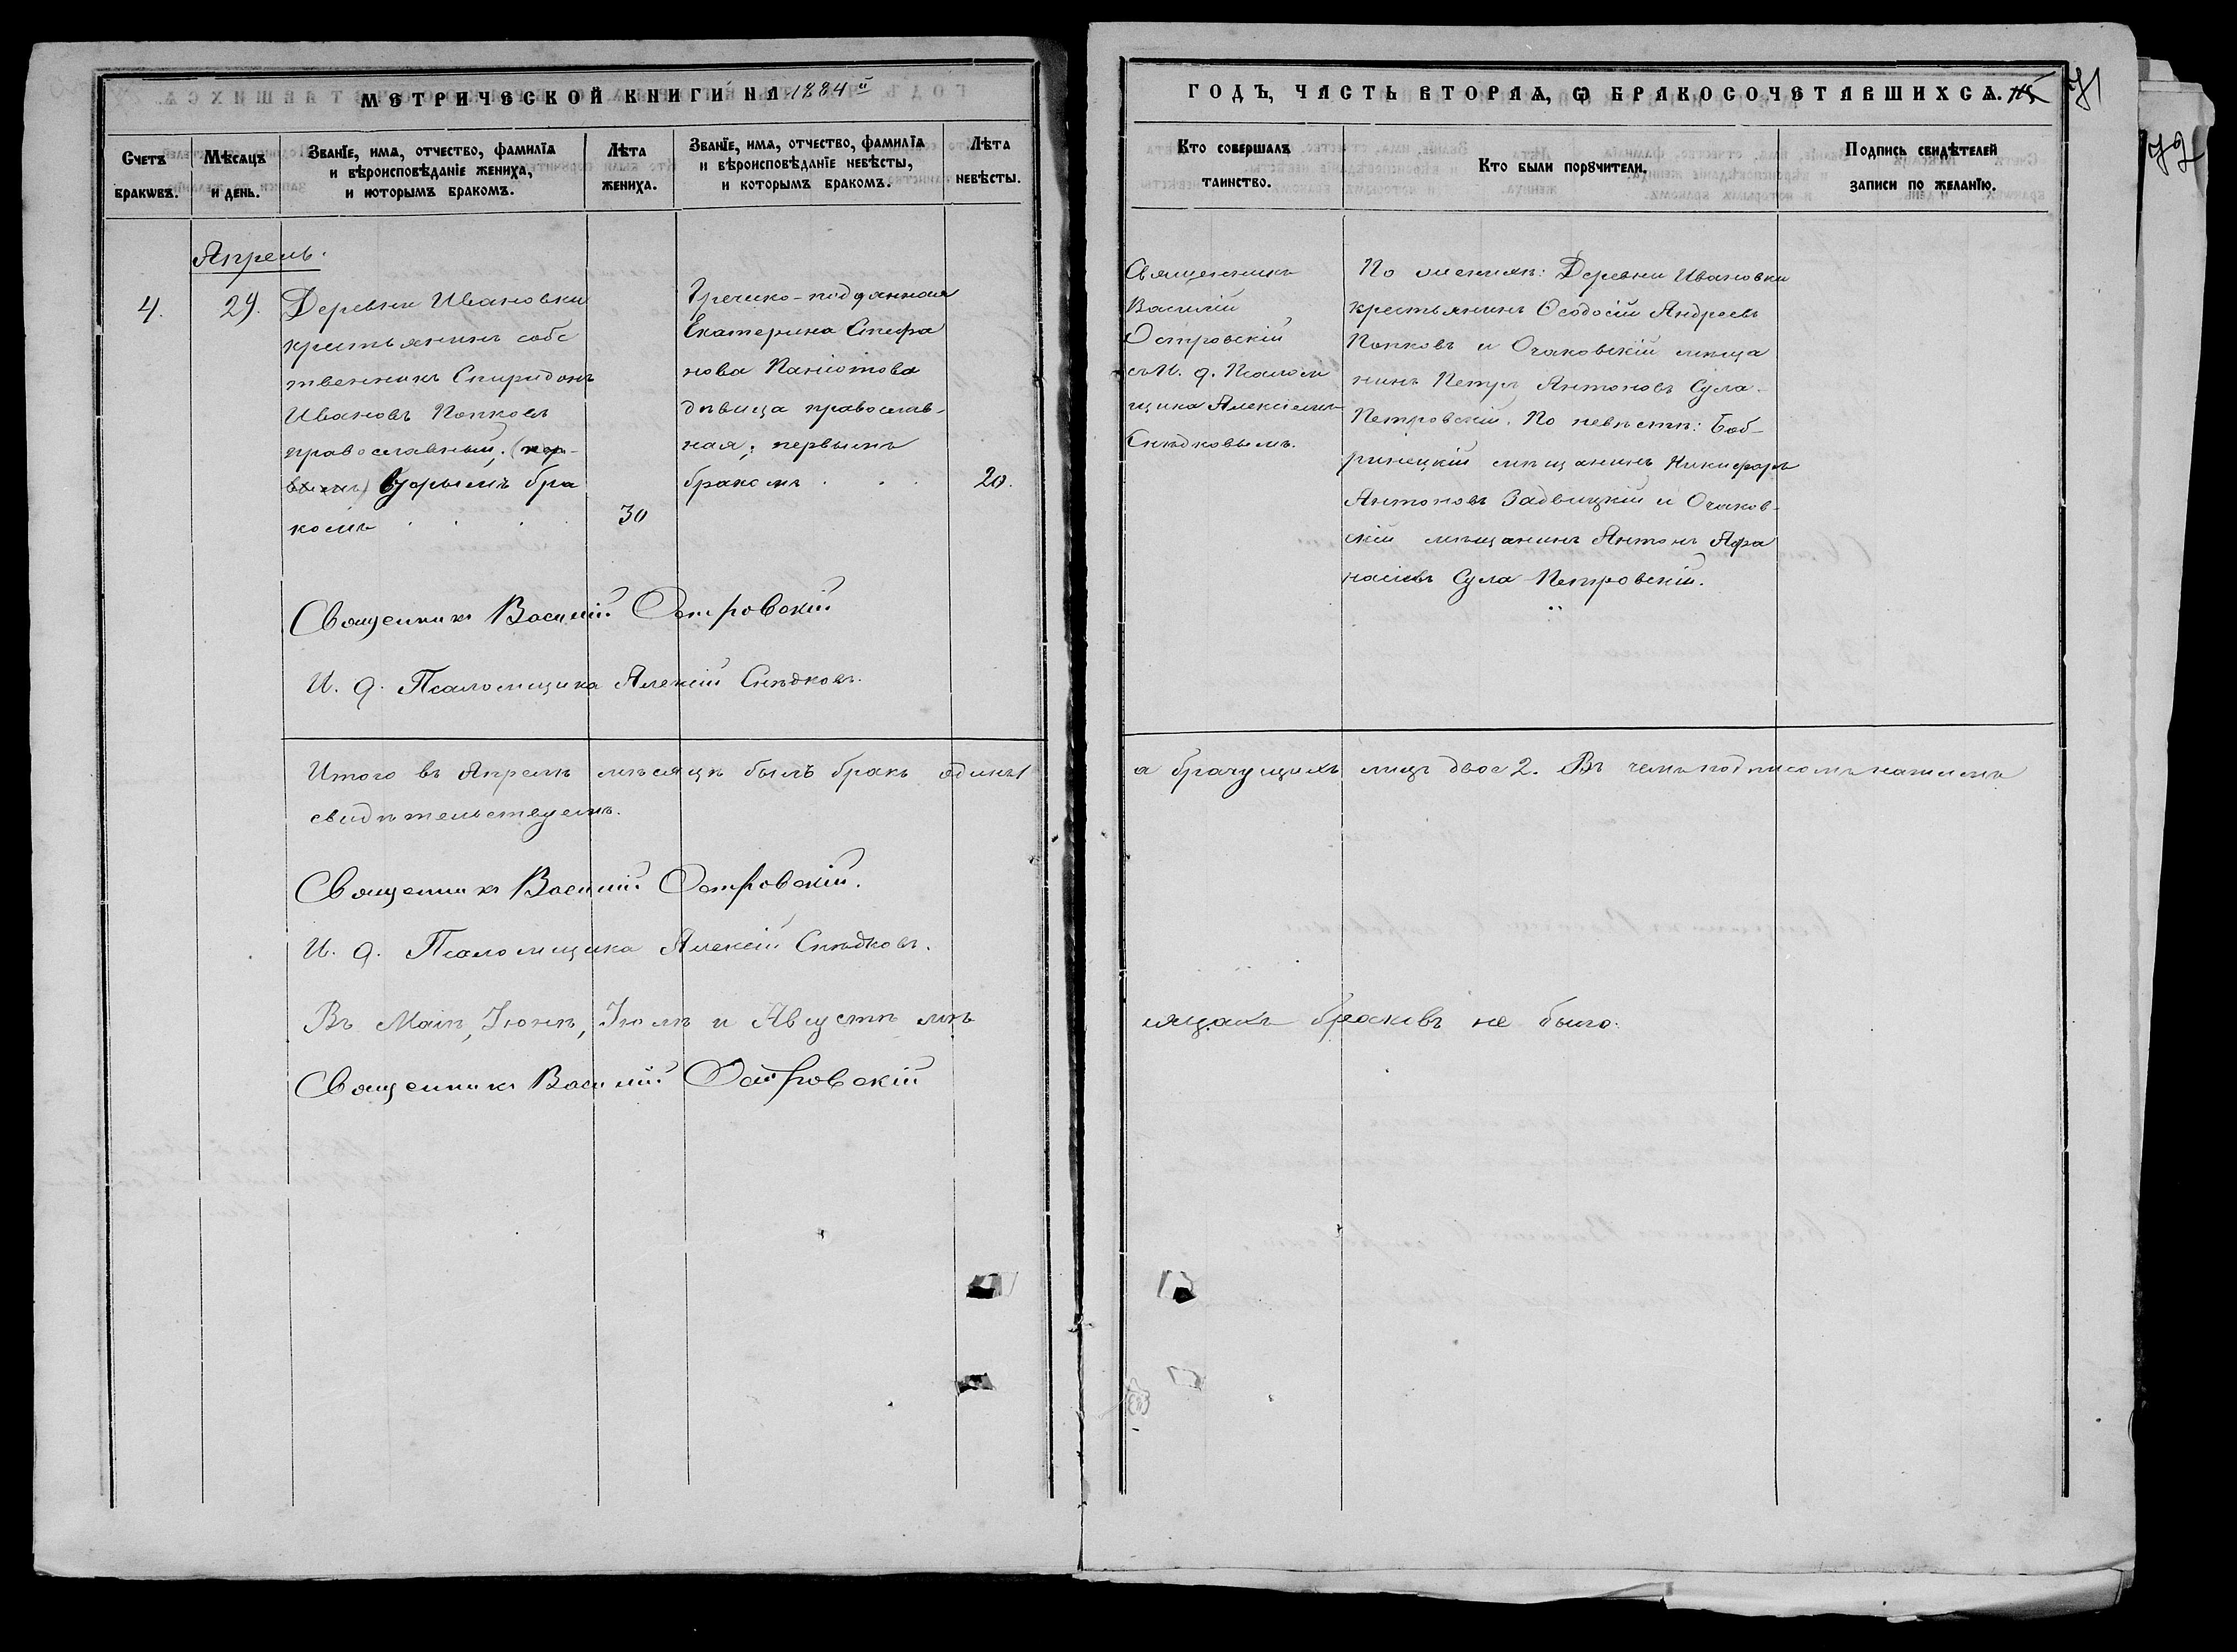 МЕТРИЧЕСКОЙ КНИГИ НА 1884й
Счетъ бракѡвъ.
Мѣсѧцъ и день.
Званїе, имѧ, отчество, фамилїѧ
и вѣроисповѣданїе жениха,
и которымъ бракомъ.
Лѣта жениха.
Званїе, имѧ, отчество, фамилїѧ
и вѣроисповѣданїе невѣсты,
и которымъ бракомъ.
Лѣта невѣсты.
Апрель.
4.
29.
Деревни Ивановки
крестьянинъ собс
твенникъ Спиридонъ
Ивановъ Попковъ
православный; (пер-
вымъ) вторымъ бра
комъ . . . .
30
Гречико-подданная
Екатерина Стефа
нова Паніотова
дѣвица православ-
ная; первымъ
бракомъ . . .
20.
Священникъ Василій Островскій
И. д. Псаломщика Алексій Снѣдковъ.
Итого въ Апрелѣ мѣсяцѣ былъ бракъ одинъ 1
свидѣтельствуемъ.
Священникъ Василій Островскій.
И. д. Псаломщика Алексій Снѣдковъ.
Въ Маѣ, Іюнѣ, Іюлѣ и Августѣ мѣ
Священникъ Василій Островскій
ГОДЪ, ЧАСТЬ ВТОРАѦ, Ѡ БРАКОСОЧЕТАВШИХСѦ.
71
72
Кто совершалъ
таинство.
Кто были порꙋчители.
Подпись свидѣтелей
записи по желанїю.
Священникъ
Василій
Островскій
съ И. д. Псалом
щика Алексіемъ
Снѣдковымъ.
По женихѣ: Деревни Ивановки
крестьянинъ Ѳеодосій Андреевъ
Попковъ и Очаковскій мѣща
нинъ Петръ Антоновъ Сула-
Петровскій. По невѣстѣ: Боб-
ринецкій мѣщанинъ Никифоръ
Антоновъ Задвицкій и Очаков-
скій мѣщанинъ Антонъ Афа
насіевъ Сула-Петровскій.
а брачущихъ лицъ двое 2. Въ чемъ подписомъ нашимъ
сяцахъ браковъ не было.